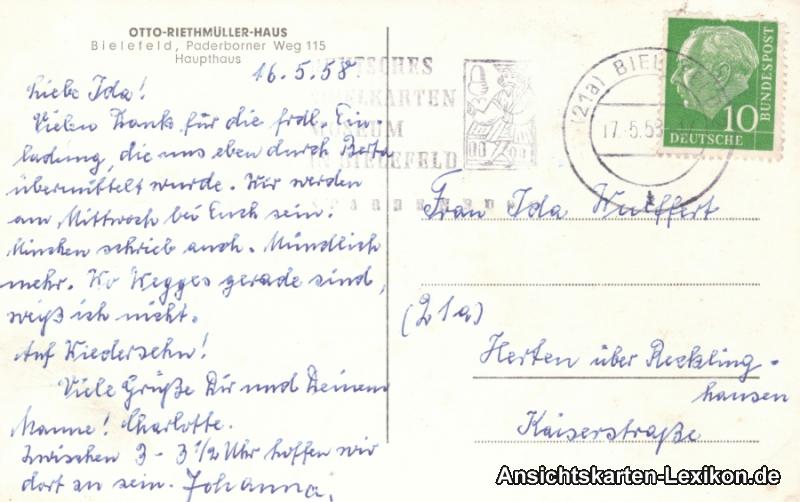 OTTO-RIETHMÜLLER-HAUS
Bielefeld, Paderborner Weg 115
Haupthaus
16.5.58
Liebe Ida!
Vielen Dank für die frdl. Ein-
ladung, die uns eben durch Berta
übermittelt wurde. Wir werden
am Mittwoch bei Euch sein.
Minchen schrieb auch. Mündlich
mehr. Wo Wegges gerade sind,
weiß ich nicht.
Auf Wiedersehn!
Viele Grüße Dir und Deinem
Manne! Charlotte.
Zwischen 3 - 3 1/2 Uhr hoffen wir
dort zu sein. Johanna.
DEUTSCHES
SPIELKARTEN
MUSEUM
IN BIELEFELD
(21a) BIELEFELD
17.-5.58
10
DEUTSCHE
BUNDESPOST
Frau Ida Wulffert
(21a)
Herten über Reckling-
hausen
Kaiserstraße
Ansichtskarten-Lexikon.de